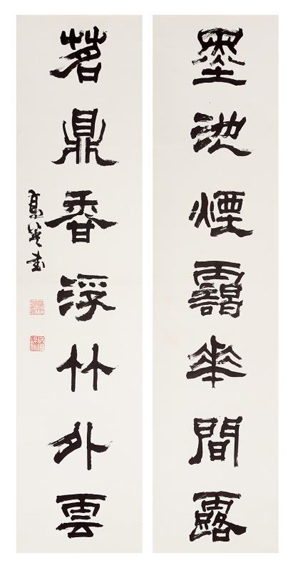 墨池煙靄華間露
茗鼎香浮竹外雲
書